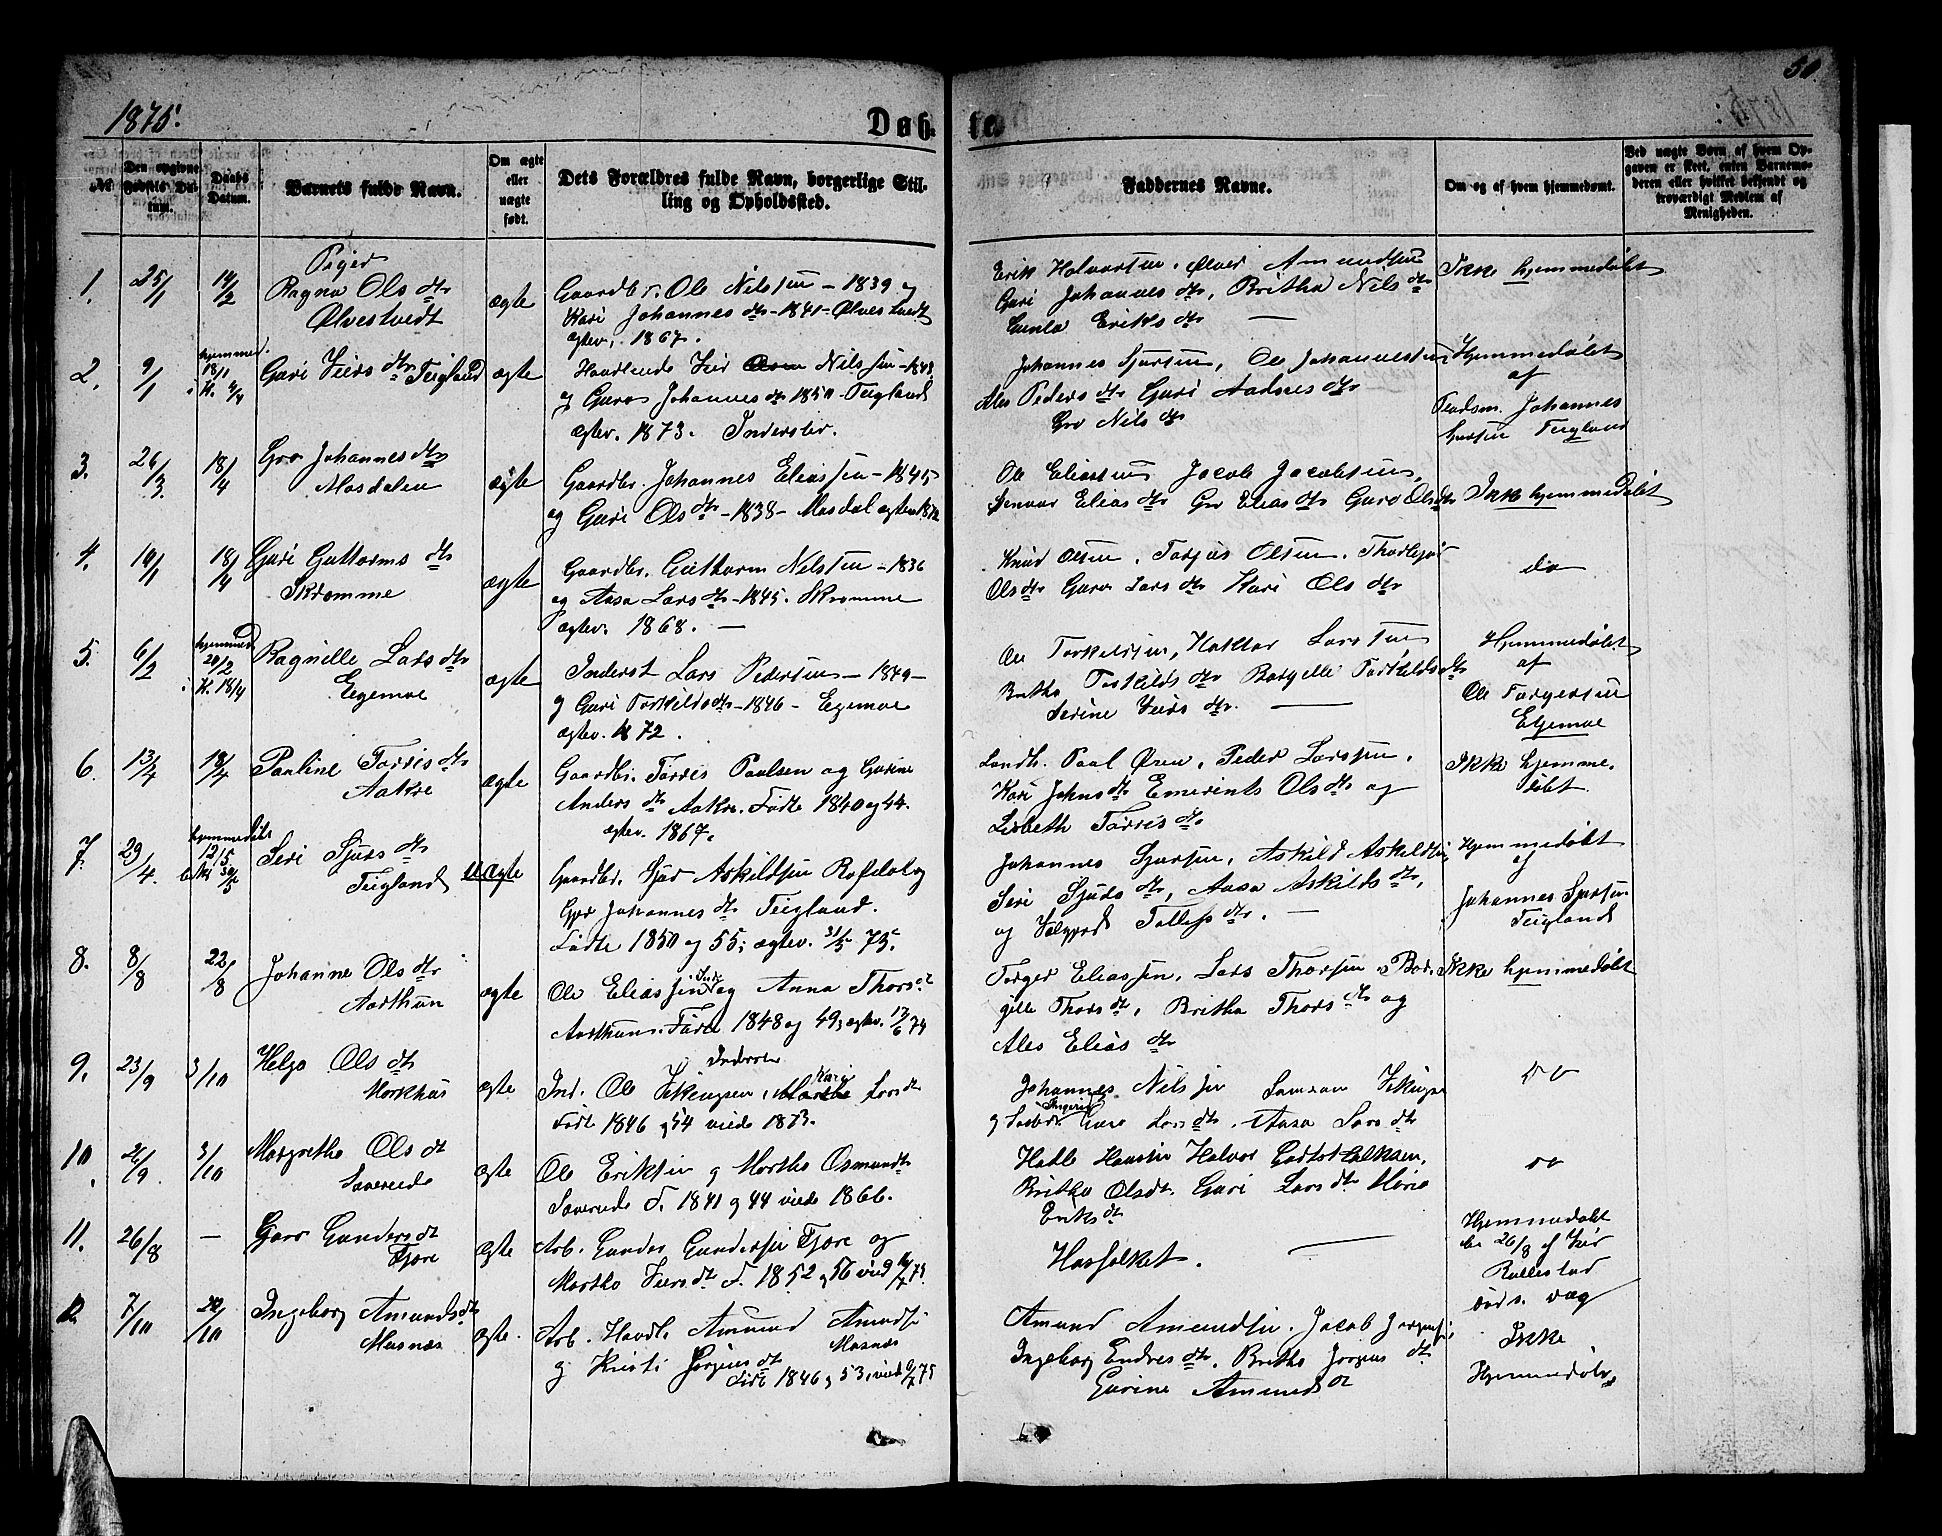 1875.
Døb-
te.
50
№
Den opgivne Fødsels Da-
tum.
Daabs Datum.
Barnets fulde Navn.
Om ægte eller uægte født.
Dets Forældres fulde Navn, borgerlige Stil-
ling og Opholdssted.
Faddernes Navne.
Om og af hvem hjemmedøbt.
Ved uægte Børn af hvem Op-
gaven er skeet, enten Barnemo-
deren eller hvilket bekjendt og
troværdigt Medlem af
Menigheden.
Piger
1. 25/1 14/2 Ragna Ols dtr
Ølvestvedt
ægte
Gaardbr. Ole Nilssen - 1839 og
Kari Johannes dtr - 1841 - Ølvestvedt
ægtev. 1867.
Erik Halvorsen. Ølver Amundsen
Guri Johannes dtr, Britha Nils dtr
Gunla Eriks dtr —
Ikke hjemmedøbt
2. 9/1 hjemmed.
18/1
i K. 4/4
Guri Viers dtr Teigland
ægte
Nilssen - 1848
og Guro Johannes dtr 1850 - Teigland
ægtev. 1873. Inderster.
Johannes Sjursen, Ole Johannessen
Ales Peders dtr Guri Aadnes dtr
Gro Nils dtr
Hjemmedøbt
af
Johannes
Teigland
3. 26/3 18/4 Gro Johannes dtr
Mosdalen
ægte
Gaardbr. Johannes Eliassen - 1845
og Guri Ols dtr - 1838 - Mosdal ægtev. 1872
Ole Eliassen Jacob Jacobsen,
Elias dtr Gro Elias dtr Guro Ols dtr
Ikke hjemmedøbt
4. 10/1 18/4 Guri Guttorms dtr
Skromme
ægte
Gaardbr. Guttorm Nilssen - 1836
og Aasa Lars dtr - 1845. Skromme
ægtev. 1868. —
Knud Olsen. Torjus Olsen. Thorbjør
Ols dtr Guro Lars dtr Kari Ols dtr
do
5. 6/2 hjemmed.
20/2
i K. 18/4
Ragnille Lars dtr
Egemoe
ægte
Inderst Lars Pedersen - 1849 -
og Guri Torkilds dtr - 1846 - Egemoe
ægtev. 1872.
Ole Torkildsen, Haktor Larssen
Britha Torkilds dtr Borgille Torkilds dtr
Serine Viers dtr. —
Hjemmedøbt
af
Ole Torgersen
Egemoe
6. 13/4 18/4 Pauline Torris dtr
Aakre
ægte
Gaardbr. Torris Paulsen og Gurine
Anders dtr Aakre. Fødte 1840 og 44.
ægtev. 1867.
Landh. Paul Øren, Peder Larssen,
Kari Johns dtr Emerints Ols dtr og
Lisbeth Torris dtr
Ikke hjemme-
døbt.
7. 29/4. hjemmedøbt
12/5
30/5
Seri Sjurs dtr
Teigland
uægte
Gaardbr. Sjur Askildsen Rafdal og
Gro Johannes dtr Teigland.
Fødte 1850 og 55; ægtev. 31/5 75.
Johannes Sjursen, Askild Askildsen
Seri Sjurs dtr, Aasa Askilds dtr,
og Valgjerd Tollefs dtr. —
Hjemmedøbt
af
Johannes Sjursen
Teigland
8. 8/8 22/8 Johanne Ols dtr
Aarthun
ægte
Ole Eliassen Ind. og Anna Thors dtr
Aarthun. Føde 1848 og 49, ægtev. 17/6 74
Torger Eliassen, Lars Thorsen, Bor-
gille Thors dtr, Britha Thors dtr og
Ales Elias dtr
Ikke hjemmedøbt
9. 23/9 3/10 Helga Ols dtr
Markhus
ægte
Ind. Ole Vikingsen, Martha Kari Lars dt
Født 1846 og 54 viede 1873.
Johannes Nilssen Samson Vikings
og Ingerid Guro Lars dtr. Aasa Lars dtr
do
10. 26/9. 3/10 Margretha Ols dt
Saverude
ægte
Ole Eriksen og Martha Osmunds dt
Saverude F. 1841 og 44 viede 1866.
Britha Olsdt. Guri Lars dtr Maria
Eriks dt
do
11. 26/8 — Guro Gunders dt
Fjære
Ægte
Arb. Gunder Gundersen Fjære og
Martha Viers dt F. 1852 og 56 vied 75.
Husfolket. —
Hjemmedøbt
26/8 af Iver
Rullestad
død s. dag
12. 7/10 /10 Ingeborg Amunds dtr
Mosnæs
ægte.
Arb. Handl. Amund Amundsen
Mosnæs
og Kristi Jørgens dt
Født 1846 og 53, vied 75
Amund Amundsen. Jacob Jørgens
Ingeborg Endres dtr. Britha Jørgens dt
Gurine Amunds dt
Ikke
Hjemmedøbt